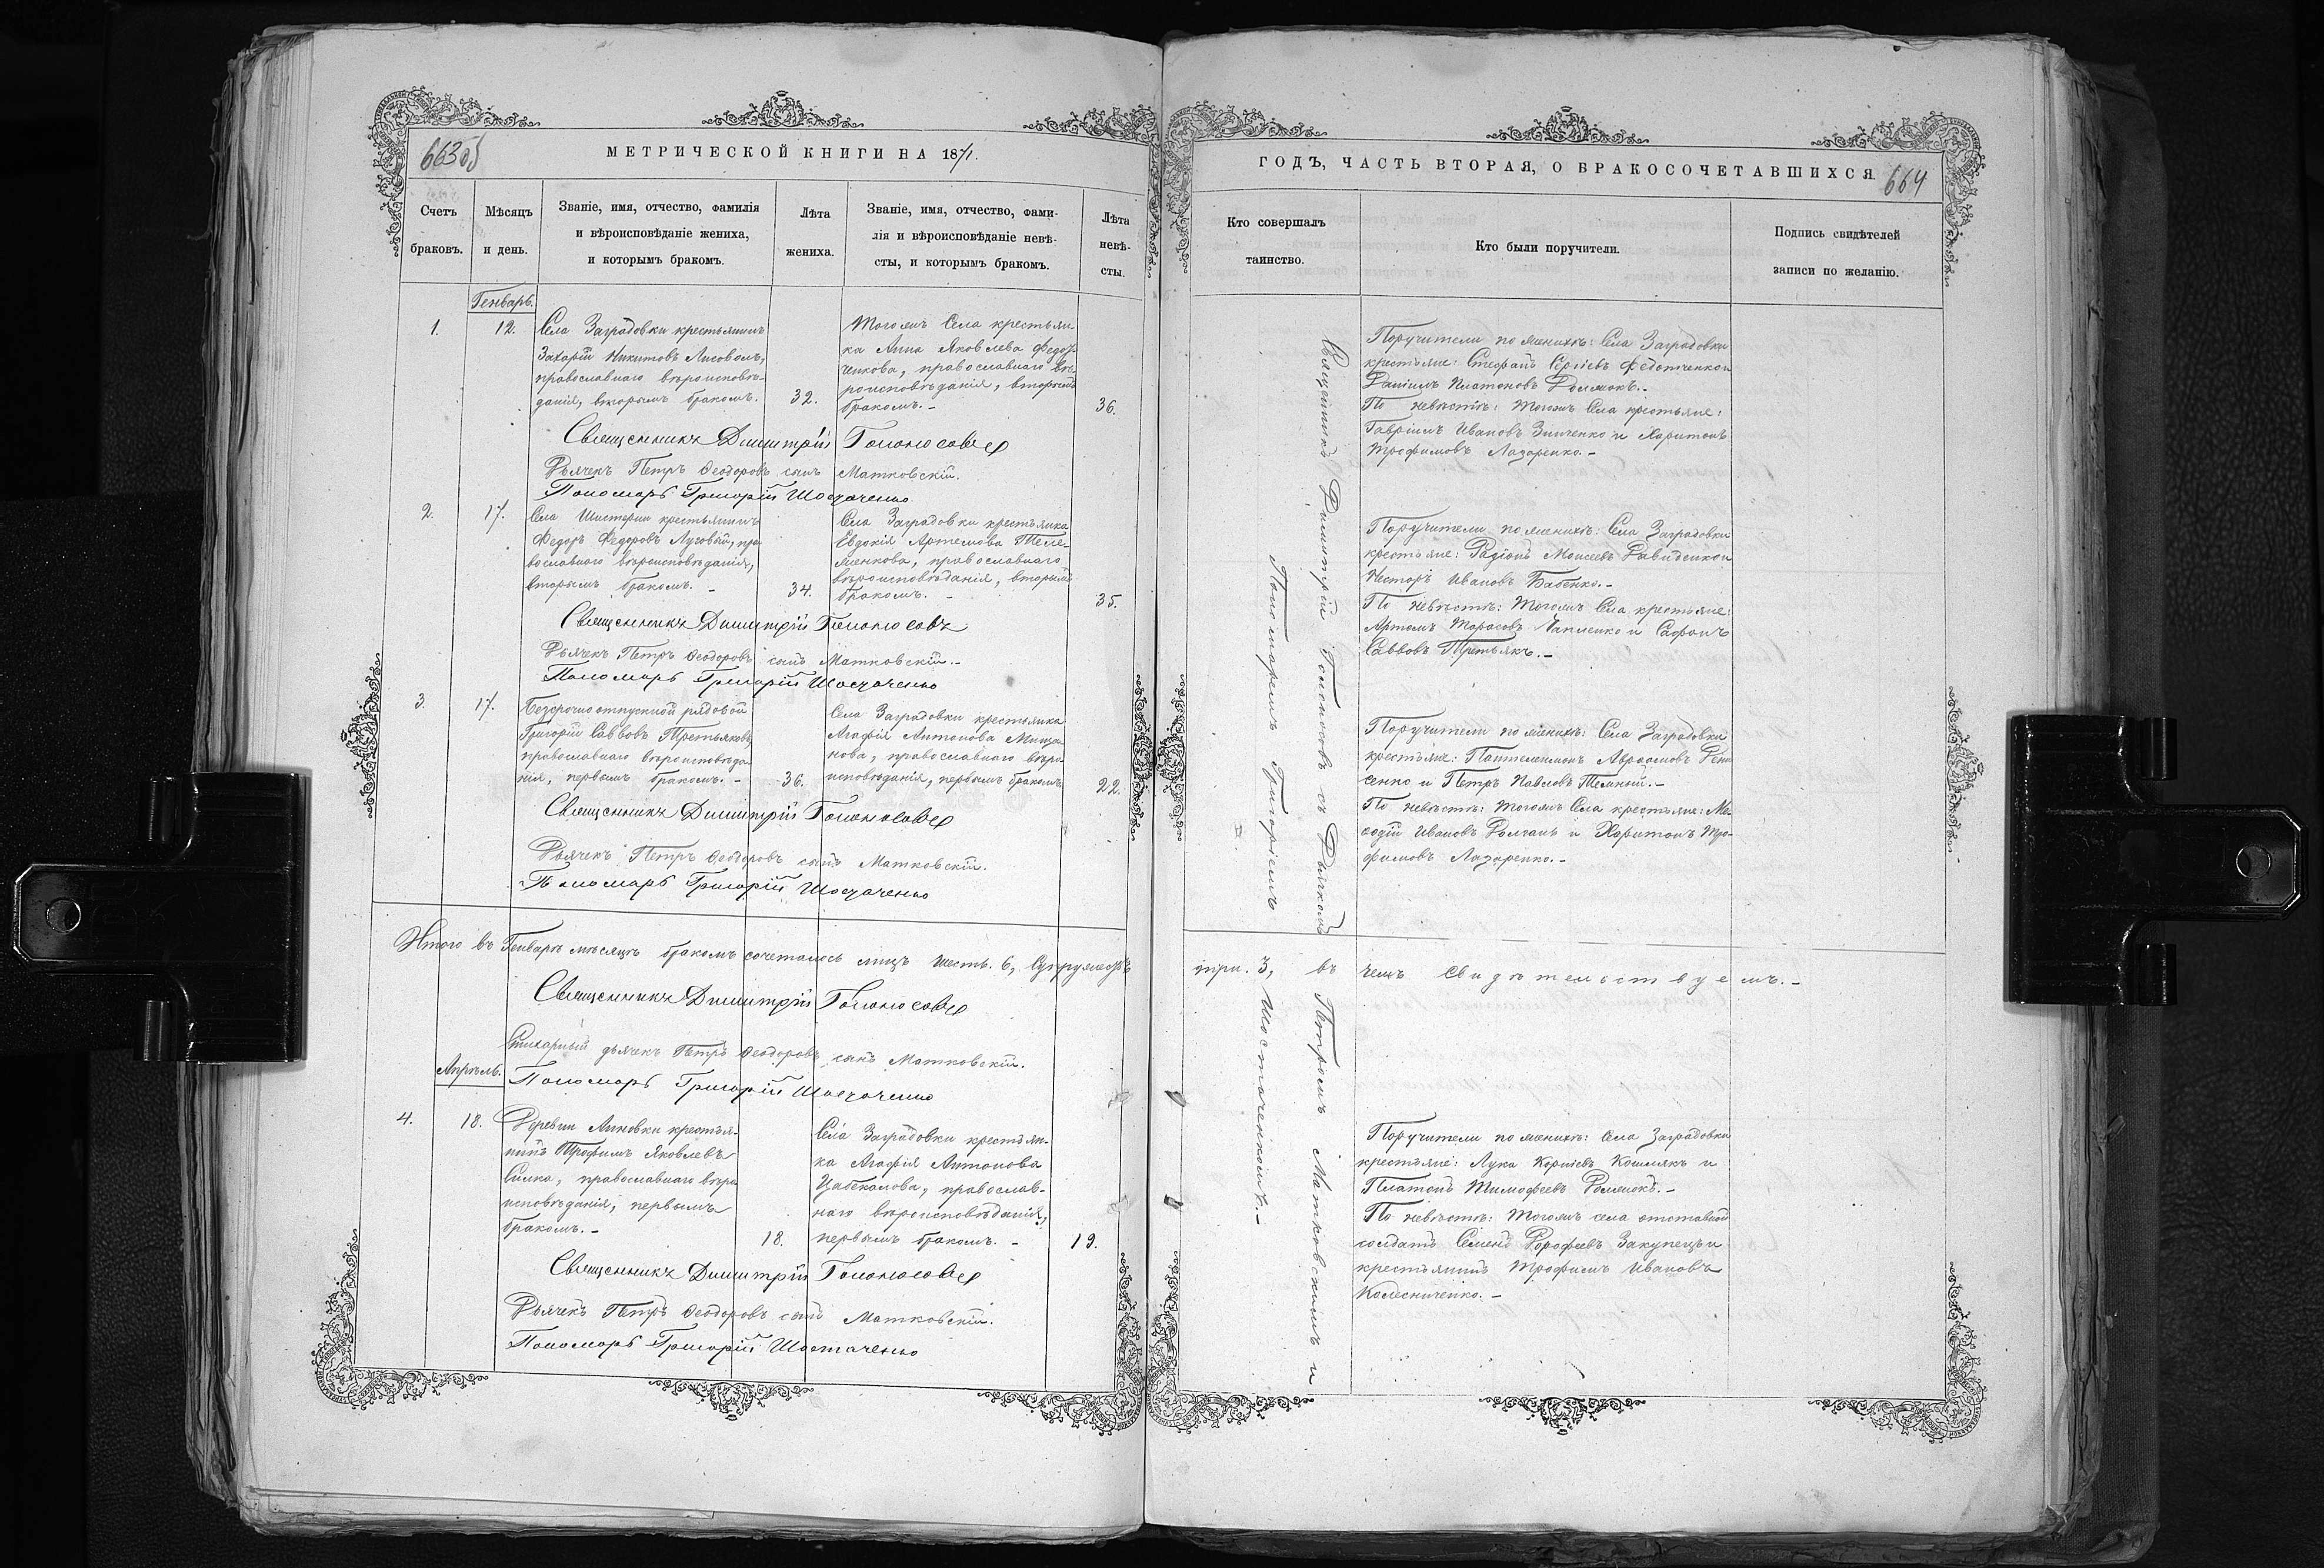 663 об
МЕТРИЧЕСКОЙ КНИГИ НА 1871.
Счетъ
браковъ.
Мѣсяцъ
и день.
Званіе, имя, отчество, фамилія
и вѣроисповѣданіе жениха,
и которымъ бракомъ.
Лѣта
жениха.
Званіе, имя, отчество, фами-
лія и вѣроисповѣданіе невѣ-
сты, и которымъ бракомъ.
Лѣта
невѣ-
сты.
Генварь.
1.
12.
Села Заградовки крестьянинъ
Захарій Никитовъ Лисоволъ,
православнаго вѣроисповѣ-
данія, вторымъ бракомъ.
32.
Тогожъ Села крестьян-
ка Анна Яковлева Федот-
ченкова, православнаго вѣ-
роисповѣданія, вторымъ
бракомъ.-
36.
Священникъ Димитрій Голоносовъ
Дьячекъ Петръ Ѳеодоровъ сынъ Матковскій.
Пономарь Григорій Шостаченко
2.
17.
Села Шестерни крестьянинъ
Федоръ Федоровъ Луговый, пра-
вославнаго вѣроисповѣданія,
вторымъ бракомъ. -
34.
Села Заградовки крестьянка
Евдокія Артемова
православнаго
вѣроисповѣданія, вторымъ
бракомъ. -
35.
Священникъ Димитрій Голоносовъ
Дьячекъ Петръ Ѳеодоровъ сынъ Матковскій.-
Пономарь Григорій Шостаченко
3.
17.
Безсрочноотпускной рядовой
Григорій Саввовъ Третьяковъ,
православнаго вѣроисповѣда-
нія, первымъ бракомъ. -
36.
Села Заградовки крестьянка
Агафія Антонова
нова, православнаго вѣро-
исповѣданія, первымъ бракомъ
22.
Священникъ Димитрій Голоносовъ
Дьячекъ Петръ Ѳеодоровъ сынъ Матковскій.
Пономарь Григорій Шостаченко
Итого въ Генварѣ мѣсяцѣ бракомъ сочеталось лицъ шесть. 6, Супружествъ
Священникъ Димитрій Голоносовъ
Стихарный дьячекъ Петръ Ѳеодоровъ сынъ Матковскій.
Пономарь Григорій Шостаченко
Апрѣль.
4.
18.
Деревни Ановки крестья-
нинъ Трофимъ Яковлевъ
православнаго вѣро-
исповѣданія, первымъ
бракомъ.-
18.
Села Заградовки крестьян-
ка Агафія Антонова
православ-
наго вѣроисповѣданія,
первымъ бракомъ. -
19.
Священникъ Димитрій Голоносовъ
Дьячекъ Петръ Ѳеодоровъ сынъ Матковскій.
Пономарь Григорій Шостаченко
ГОДЪ, ЧАСТЬ ВТОРАЯ, О БРАКОСОЧЕТАВШИХСЯ
664
Кто совершалъ
таинство.
Кто были поручители.
Подпись свидѣтелей
записи по желанію.
Священникъ Димитрій Голоносовъ съ Дьячкомъ Петромъ Матковскимъ и
Пономаремъ Григоріемъ Шостаченкомъ.-
Поручители по женихѣ: Села Заградовки
крестьяне: Стефанъ Сергіевъ Федотченко и
Даніилъ Платоновъ Долженокъ.-
По невѣстѣ: Тогожъ Села крестьяне:
Гавріилъ Ивановъ Зинченко и Харитонъ
Трофимовъ Лазаренко.-
Поручители по женихѣ: Села Заградовки
крестьяне: Родіонъ Моисеевъ Давиденко и
Несторъ Ивановъ Бабенко.-
По невѣстѣ: Тогожъ Села крестьяне:
Артемъ Тарасовъ и Сафонъ
Саввовъ Третьякъ.-
Поручители по женихѣ: Села Заградовки
крестьяне: Пантелимонъ Авраамовъ
сенко и Петръ Павловъ Темный.-
По невѣстѣ: Тогожъ Села крестьяне: Ме-
ѳодій Ивановъ Долганъ и Харитонъ Тро-
фимовъ Лазаренко.-
три. 3, въ чемъ свидѣтельствуемъ.-
Поручители по женихѣ: Села Заградовки
крестьяне: Лука Корніевъ Кошлякъ и
Платонъ Тимофеевъ Долженокъ.-
По невѣстѣ: Тогожъ села отставной
солдатъ Семенъ Дорофеевъ Закупецъ и
крестьянинъ Трофимъ Ивановъ
Колесниченко.-